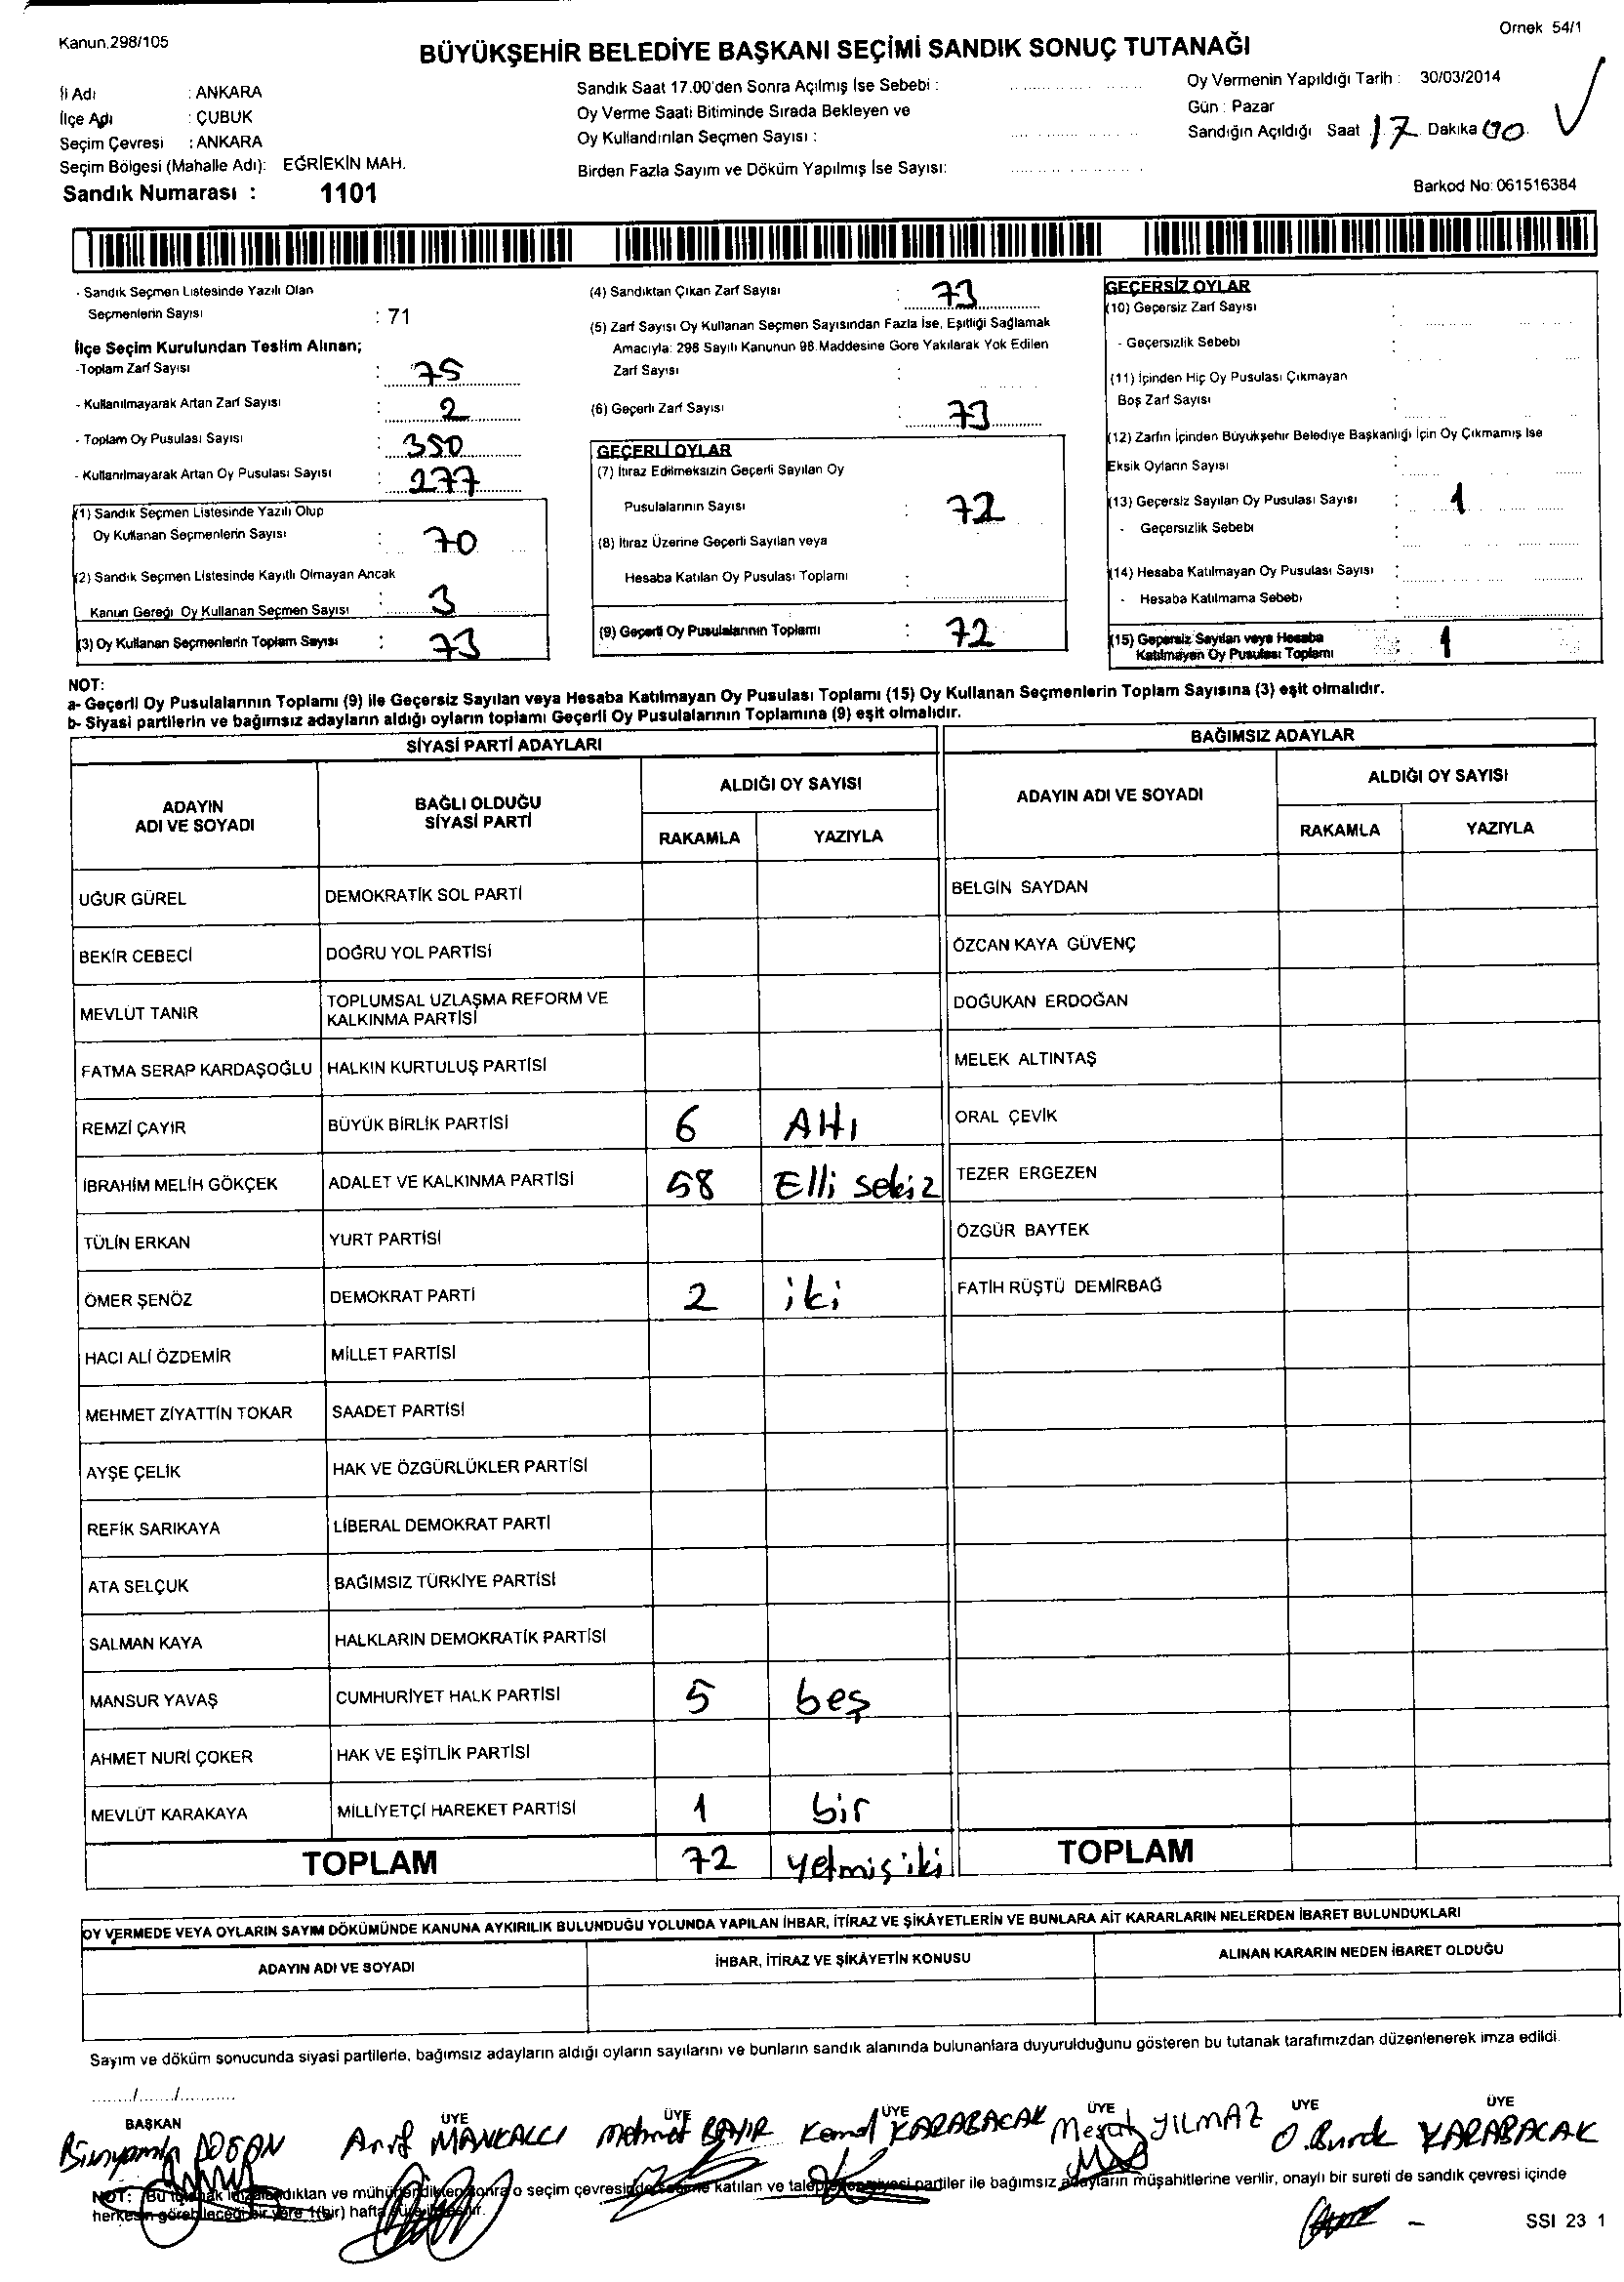 Kanun.298/105
Örnek 54/1
BÜYÜKŞEHİR BELEDİYE BAŞKANI SEÇİMİ SANDIK SONUÇ TUTANAĞI
İli Adı : ANKARA
İlçe Adı : ÇUBUK
Seçim Çevresi : ANKARA
Seçim Bölgesi (Mahalle Adı): EĞRİEKİN MAH.
Sandık Numarası : 1101
Sandık Saat 17.00'den Sonra Açılmış İse Sebebi :
Oy Verme Saati Bitiminde Sırada Bekleyen ve
Oy Kullandırılan Seçmen Sayısı :
Birden Fazla Sayım ve Döküm Yapılmış İse Sayısı:
Oy Vermenin Yapıldığı Tarih : 30/03/2014
Gün : Pazar
Sandığın Açıldığı Saat 17 Dakika 00
Barkod No: 061516384
- Sandık Seçmen Listesinde Yazılı Olan
Seçmenlerin Sayısı : 71
İlçe Seçim Kurulundan Teslim Alınan;
-Toplam Zarf Sayısı : 75
- Kullanılmayarak Artan Zarf Sayısı : 2
- Toplam Oy Pusulası Sayısı : 350
- Kullanılmayarak Artan Oy Pusulası Sayısı : 277
(1) Sandık Seçmen Listesinde Yazılı Olup
Oy Kullanan Seçmenlerin Sayısı : 70
(2) Sandık Seçmen Listesinde Kayıtlı Olmayan Ancak
Kanun Gereği Oy Kullanan Seçmen Sayısı : 3
(3) Oy Kullanan Seçmenlerin Toplam Sayısı : 73
(4) Sandıktan Çıkan Zarf Sayısı : 73
(5) Zarf Sayısı Oy Kullanan Seçmen Sayısından Fazla İse, Eşitliği Sağlamak
Amacıyla: 298 Sayılı Kanunun 98.Maddesine Göre Yakılarak Yok Edilen
Zarf Sayısı :
(6) Geçerli Zarf Sayısı : 73
GEÇERLİ OYLAR
(7) İtiraz Edilmeksizin Geçerli Sayılan Oy
Pusulalarının Sayısı : 72
(8) İtiraz Üzerine Geçerli Sayılan veya
Hesaba Katılan Oy Pusulası Toplamı :
(9) Geçerli Oy Pusulalarının Toplamı : 72
GEÇERSİZ OYLAR
(10) Geçersiz Zarf Sayısı :
- Geçersizlik Sebebi :
(11) İçinden Hiç Oy Pusulası Çıkmayan
Boş Zarf Sayısı :
(12) Zarfın İçinden Büyükşehir Belediye Başkanlığı İçin Oy Çıkmamış İse
Eksik Oyların Sayısı :
(13) Geçersiz Sayılan Oy Pusulası Sayısı : 1
- Geçersizlik Sebebi :
(14) Hesaba Katılmayan Oy Pusulası Sayısı :
- Hesaba Katılmama Sebebi :
(15) Geçersiz Sayılan veya Hesaba
Katılmayan Oy Pusulası Toplamı : 1
NOT:
a- Geçerli Oy Pusulalarının Toplamı (9) ile Geçersiz Sayılan veya Hesaba Katılmayan Oy Pusulası Toplamı (15) Oy Kullanan Seçmenlerin Toplam Sayısına (3) eşit olmalıdır.
b- Siyasi partilerin ve bağımsız adayların aldığı oyların toplamı Geçerli Oy Pusulalarının Toplamına (9) eşit olmalıdır.
SİYASİ PARTİ ADAYLARI
BAĞIMSIZ ADAYLAR
ADAYIN
ADI VE SOYADI
BAĞLI OLDUĞU
SİYASİ PARTİ
ALDIĞI OY SAYISI
RAKAMLA YAZIYLA
ADAYIN ADI VE SOYADI
ALDIĞI OY SAYISI
RAKAMLA YAZIYLA
UĞUR GÜREL DEMOKRATİK SOL PARTİ BELGİN SAYDAN
BEKİR CEBECİ DOĞRU YOL PARTİSİ ÖZCAN KAYA GÜVENÇ
MEVLÜT TANIR TOPLUMSAL UZLAŞMA REFORM VE KALKINMA PARTİSİ DOĞUKAN ERDOĞAN
FATMA SERAP KARDAŞOĞLU HALKIN KURTULUŞ PARTİSİ MELEK ALTINTAŞ
REMZİ ÇAYIR BÜYÜK BİRLİK PARTİSİ 6 Altı ORAL ÇEVİK
İBRAHİM MELİH GÖKÇEK ADALET VE KALKINMA PARTİSİ 58 Elli sekiz TEZER ERGEZEN
TÜLİN ERKAN YURT PARTİSİ ÖZGÜR BAYTEK
ÖMER ŞENÖZ DEMOKRAT PARTİ 2 iki FATİH RÜŞTÜ DEMİRBAĞ
HACI ALİ ÖZDEMİR MİLLET PARTİSİ
MEHMET ZİYATTİN TOKAR SAADET PARTİSİ
AYŞE ÇELİK HAK VE ÖZGÜRLÜKLER PARTİSİ
REFİK SARIKAYA LİBERAL DEMOKRAT PARTİ
ATA SELÇUK BAĞIMSIZ TÜRKİYE PARTİSİ
SALMAN KAYA HALKLARIN DEMOKRATİK PARTİSİ
MANSUR YAVAŞ CUMHURİYET HALK PARTİSİ 5 beş
AHMET NURİ ÇOKER HAK VE EŞİTLİK PARTİSİ
MEVLÜT KARAKAYA MİLLİYETÇİ HAREKET PARTİSİ 1 bir
TOPLAM 72 yetmiş iki TOPLAM
OY VERMEDE VEYA OYLARIN SAYIM DÖKÜMÜNDE KANUNA AYKIRILIK BULUNDUĞU YOLUNDA YAPILAN İHBAR, İTİRAZ VE ŞİKÂYETLERİN VE BUNLARA AİT KARARLARIN NELERDEN İBARET BULUNDUKLARI
ADAYIN ADI VE SOYADI İHBAR, İTİRAZ VE ŞİKÂYETİN KONUSU ALINAN KARARIN NEDEN İBARET OLDUĞU
Sayım ve döküm sonucunda siyasi partilerle, bağımsız adayların aldığı oyların sayılarını ve bunların sandık alanında bulunanlara duyurulduğunu gösteren bu tutanak tarafımızdan düzenlenerek imza edildi.
......../......../............
BAŞKAN ÜYE ÜYE ÜYE ÜYE ÜYE ÜYE
Bünyamin DOĞAN Arif MANKALCI Mehmet BAYIR Kemal KARABACAK Mesut YILMAZ O.Burak KARABACAK
NOT: Bu tutanak imzalandıktan ve mühürlendikten sonra o seçim çevresinde seçime katılan ve talep eden siyasi partiler ile bağımsız adayların müşahitlerine verilir, onaylı bir sureti de sandık çevresi içinde
herkesin görebileceği bir yere 1(bir) hafta
SSI 23 1